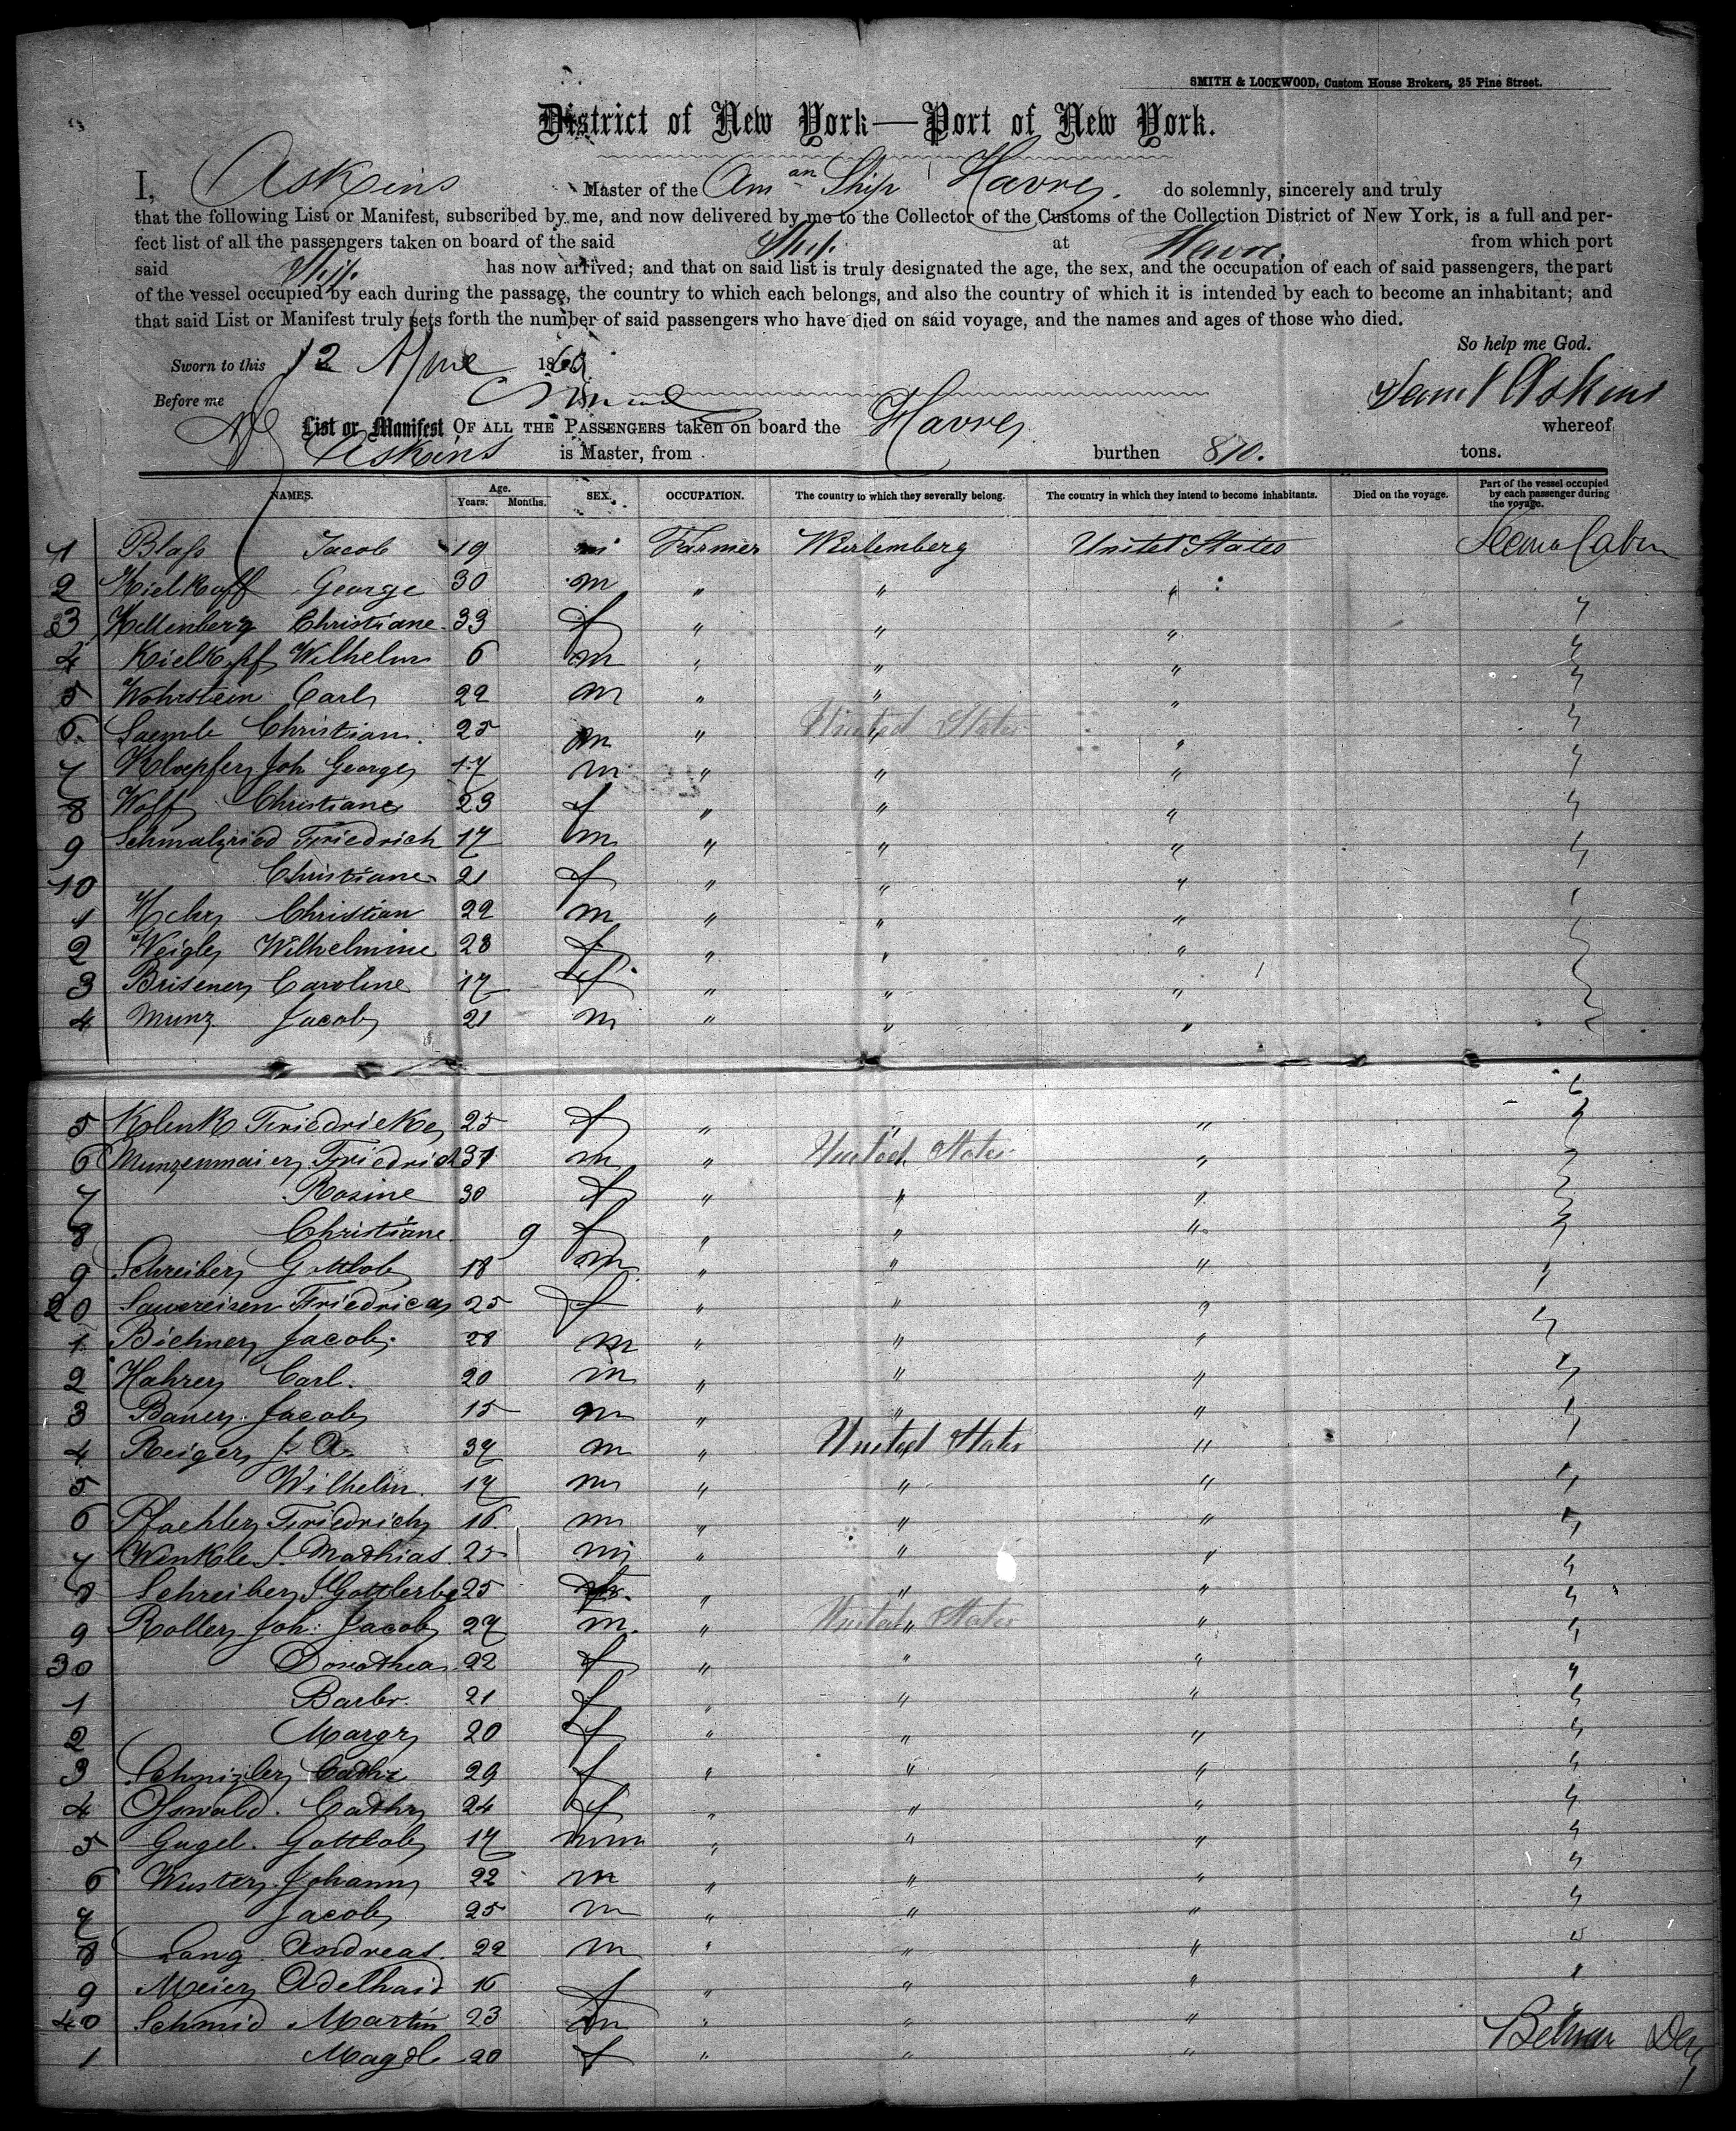 SMITH & LOCKWOOD, Custom House Brokers, 25 Pine Street.
District of New York—Port of New York.
I, Askins Master of the Am an Ship Havre do solemnly, sincerely and truly
that the following List or Manifest, subscribed by me, and now delivered by me to the Collector of the Customs of the Collection District of New York, is a full and per-
fect list of all the passengers taken on board of the said Ship at Havre from which port
said Ship has now arrived; and that on said list is truly designated the age, the sex, and the occupation of each of said passengers, the part
of the vessel occupied by each during the passage, the country to which each belongs, and also the country of which it is intended by each to become an inhabitant; and
that said List or Manifest truly sets forth the number of said passengers who have died on said voyage, and the names and ages of those who died.
So help me God.
Sworn to this 12 186
Before me Askins
List or Manifest OF ALL THE PASSENGERS taken on board the Havre whereof
Askins is Master, from burthen 870. tons.
NAMES. Age. Years. Months. SEX. OCCUPATION. The country to which they severally belong. The country in which they intend to become inhabitants. Died on the voyage. Part of the vessel occupied by each passenger during the voyage.
1 Blass Jacob 19 m Farmer Wurtemberg United States
2 Kielkopf George 30 m " " "
3 Kellenberg Christiane 33 f " " "
4 Kielkopf Wilhelm 6 m " " "
5 Wohrstein Carl 22 m " " "
6 Christian 25 m " United States "
7 Kloepfer Joh George 17 m " " "
8 Wolf Christiane 23 f " " "
9 Schmalzried Friedrich 17 m " " "
10 Christiane 21 f " " "
1 Christian 22 m " " "
2 Weigle Wilhelmine 28 f " " "
3 Brisener Caroline 17 f " " "
4 Munz Jacob 21 m " " "
5 Kolenk Friedricke 25 f " " "
6 Munzenmaier Friedrich 31 m " United States "
7 Rosine 30 f " " "
8 Christiane 9 f " " "
9 Schreiber Gottlob 18 m " " "
20 Sauereisen Friedrica 25 f " " "
1 Bichner Jacob 28 m " " "
2 Hahrer Carl. 20 m " " "
3 Bauer Jacob 15 m " " "
4 Reiger J. A. 37 m " United States "
5 Wilhelm. 17 m " " "
6 Pfaehler Friedrich 16 m " " "
7 Winkle J. Mathias 25 m " " "
8 Schreiber 25 " " "
9 Roller Joh: Jacob 27 m. " United States "
30 Dorothea 22 f " " "
1 Barbr. 21 f " " "
2 Margr 20 f " " "
3 29 f " " "
4 Osswald. Cathr 24 f " " "
5 Gugel. Gottlob 17 m " " "
6 Wuster Johann 22 m " " "
7 Jacob 25 m " " "
8 Lang Andreas. 22 m " " "
9 Meier Adelhaid 16 f " " "
40 Schmid Martin 23 m " " "
1 Magdl 20 f " " "